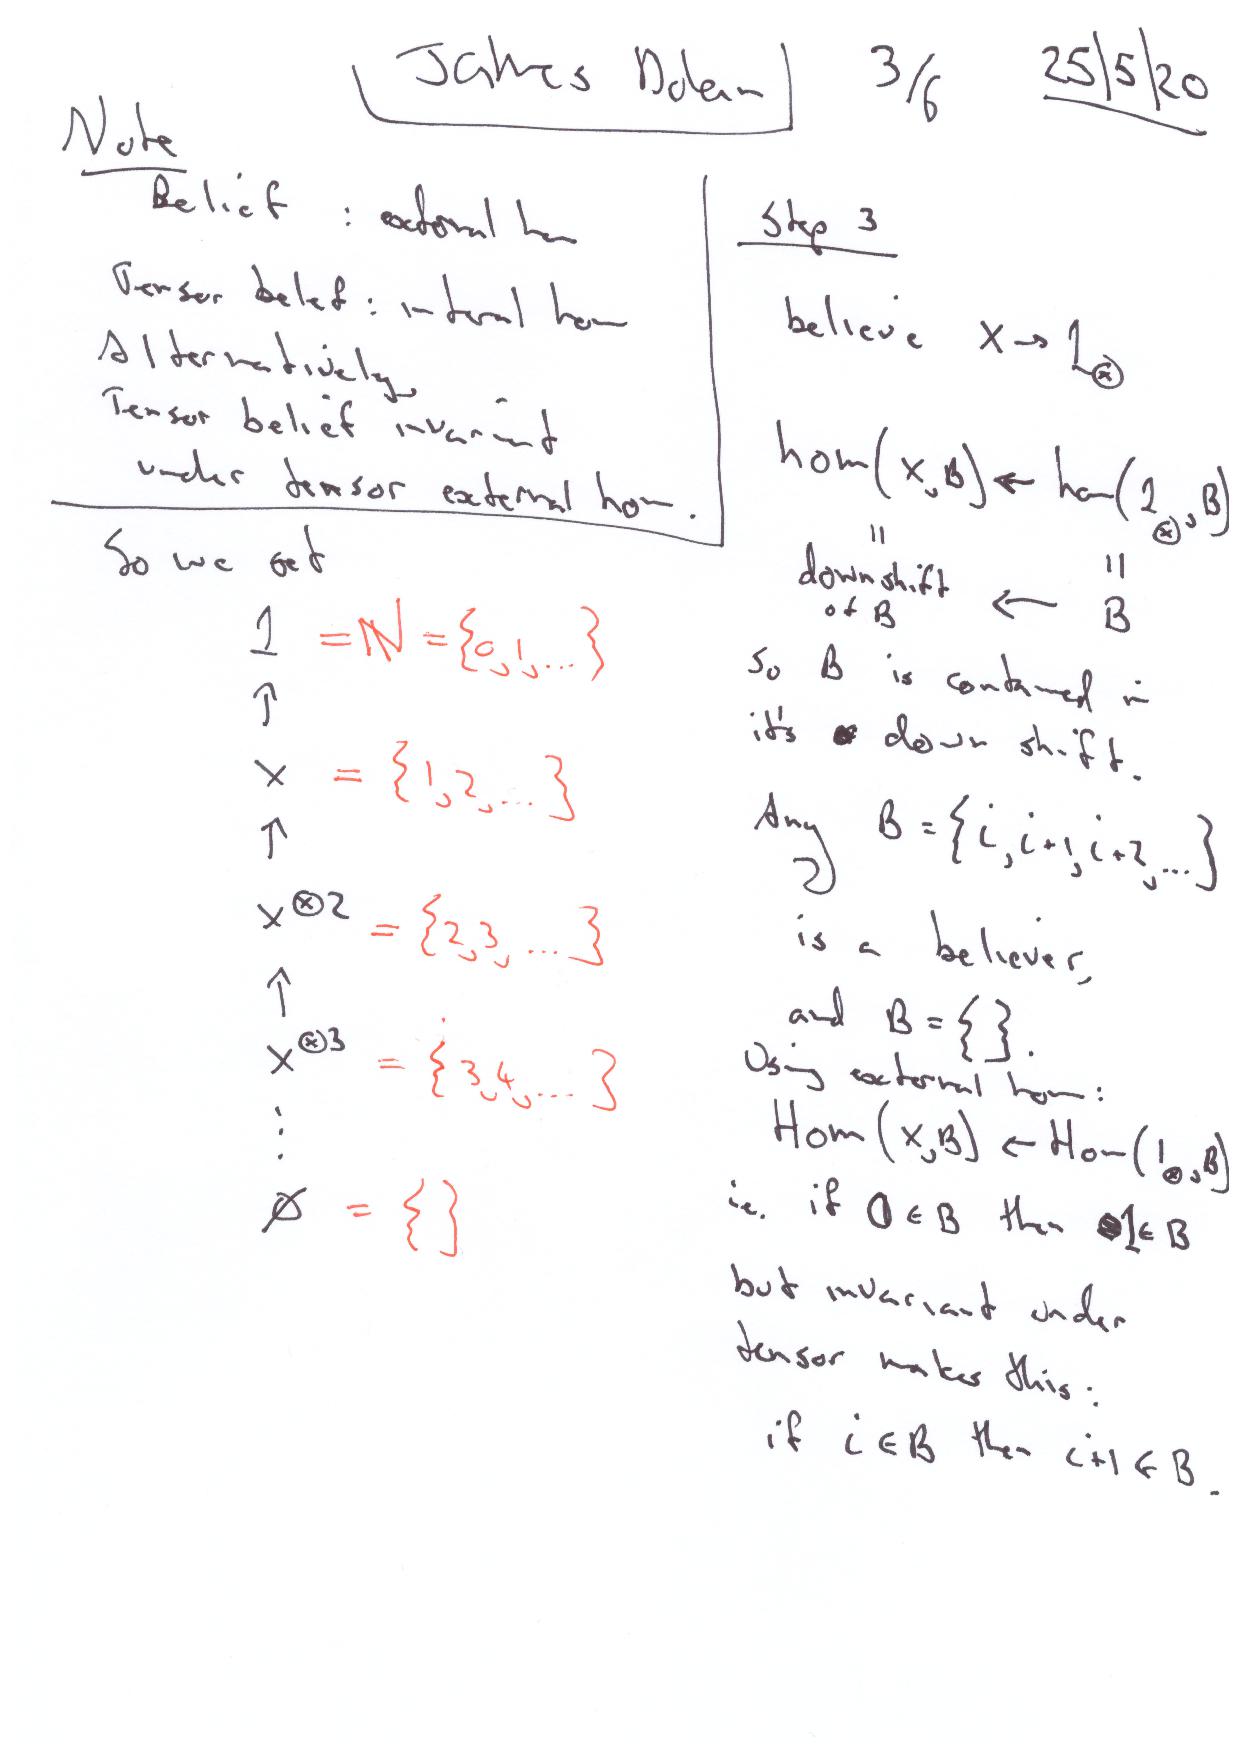 James Dolan 3/6 25/5/20
Note
Belief : external hom
Tensor belief : internal hom
Alternatively,
Tensor belief invariant
under tensor external hom.
So we get
1 = ℕ = {0, 1, ...}
↑
x = {1, 2, ...}
↑
x^⊗2 = {2, 3, ...}
↑
x^⊗3 = {3, 4, ...}
⋮
∅ = { }
Step 3
believe x → 1_⊗
hom(x, B) ← hom(1_⊗, B)
॥ ॥
downshift
of B ← B
So B is contained in
it's down shift.
Any B = {i, i+1, i+2, ...}
is a believer,
and B = { }.
Using external hom:
Hom(x, B) ← Hom(1_⊗, B)
ie. if 0 ∈ B then 1 ∈ B
but invariant under
tensor makes this:
if i ∈ B then i+1 ∈ B.